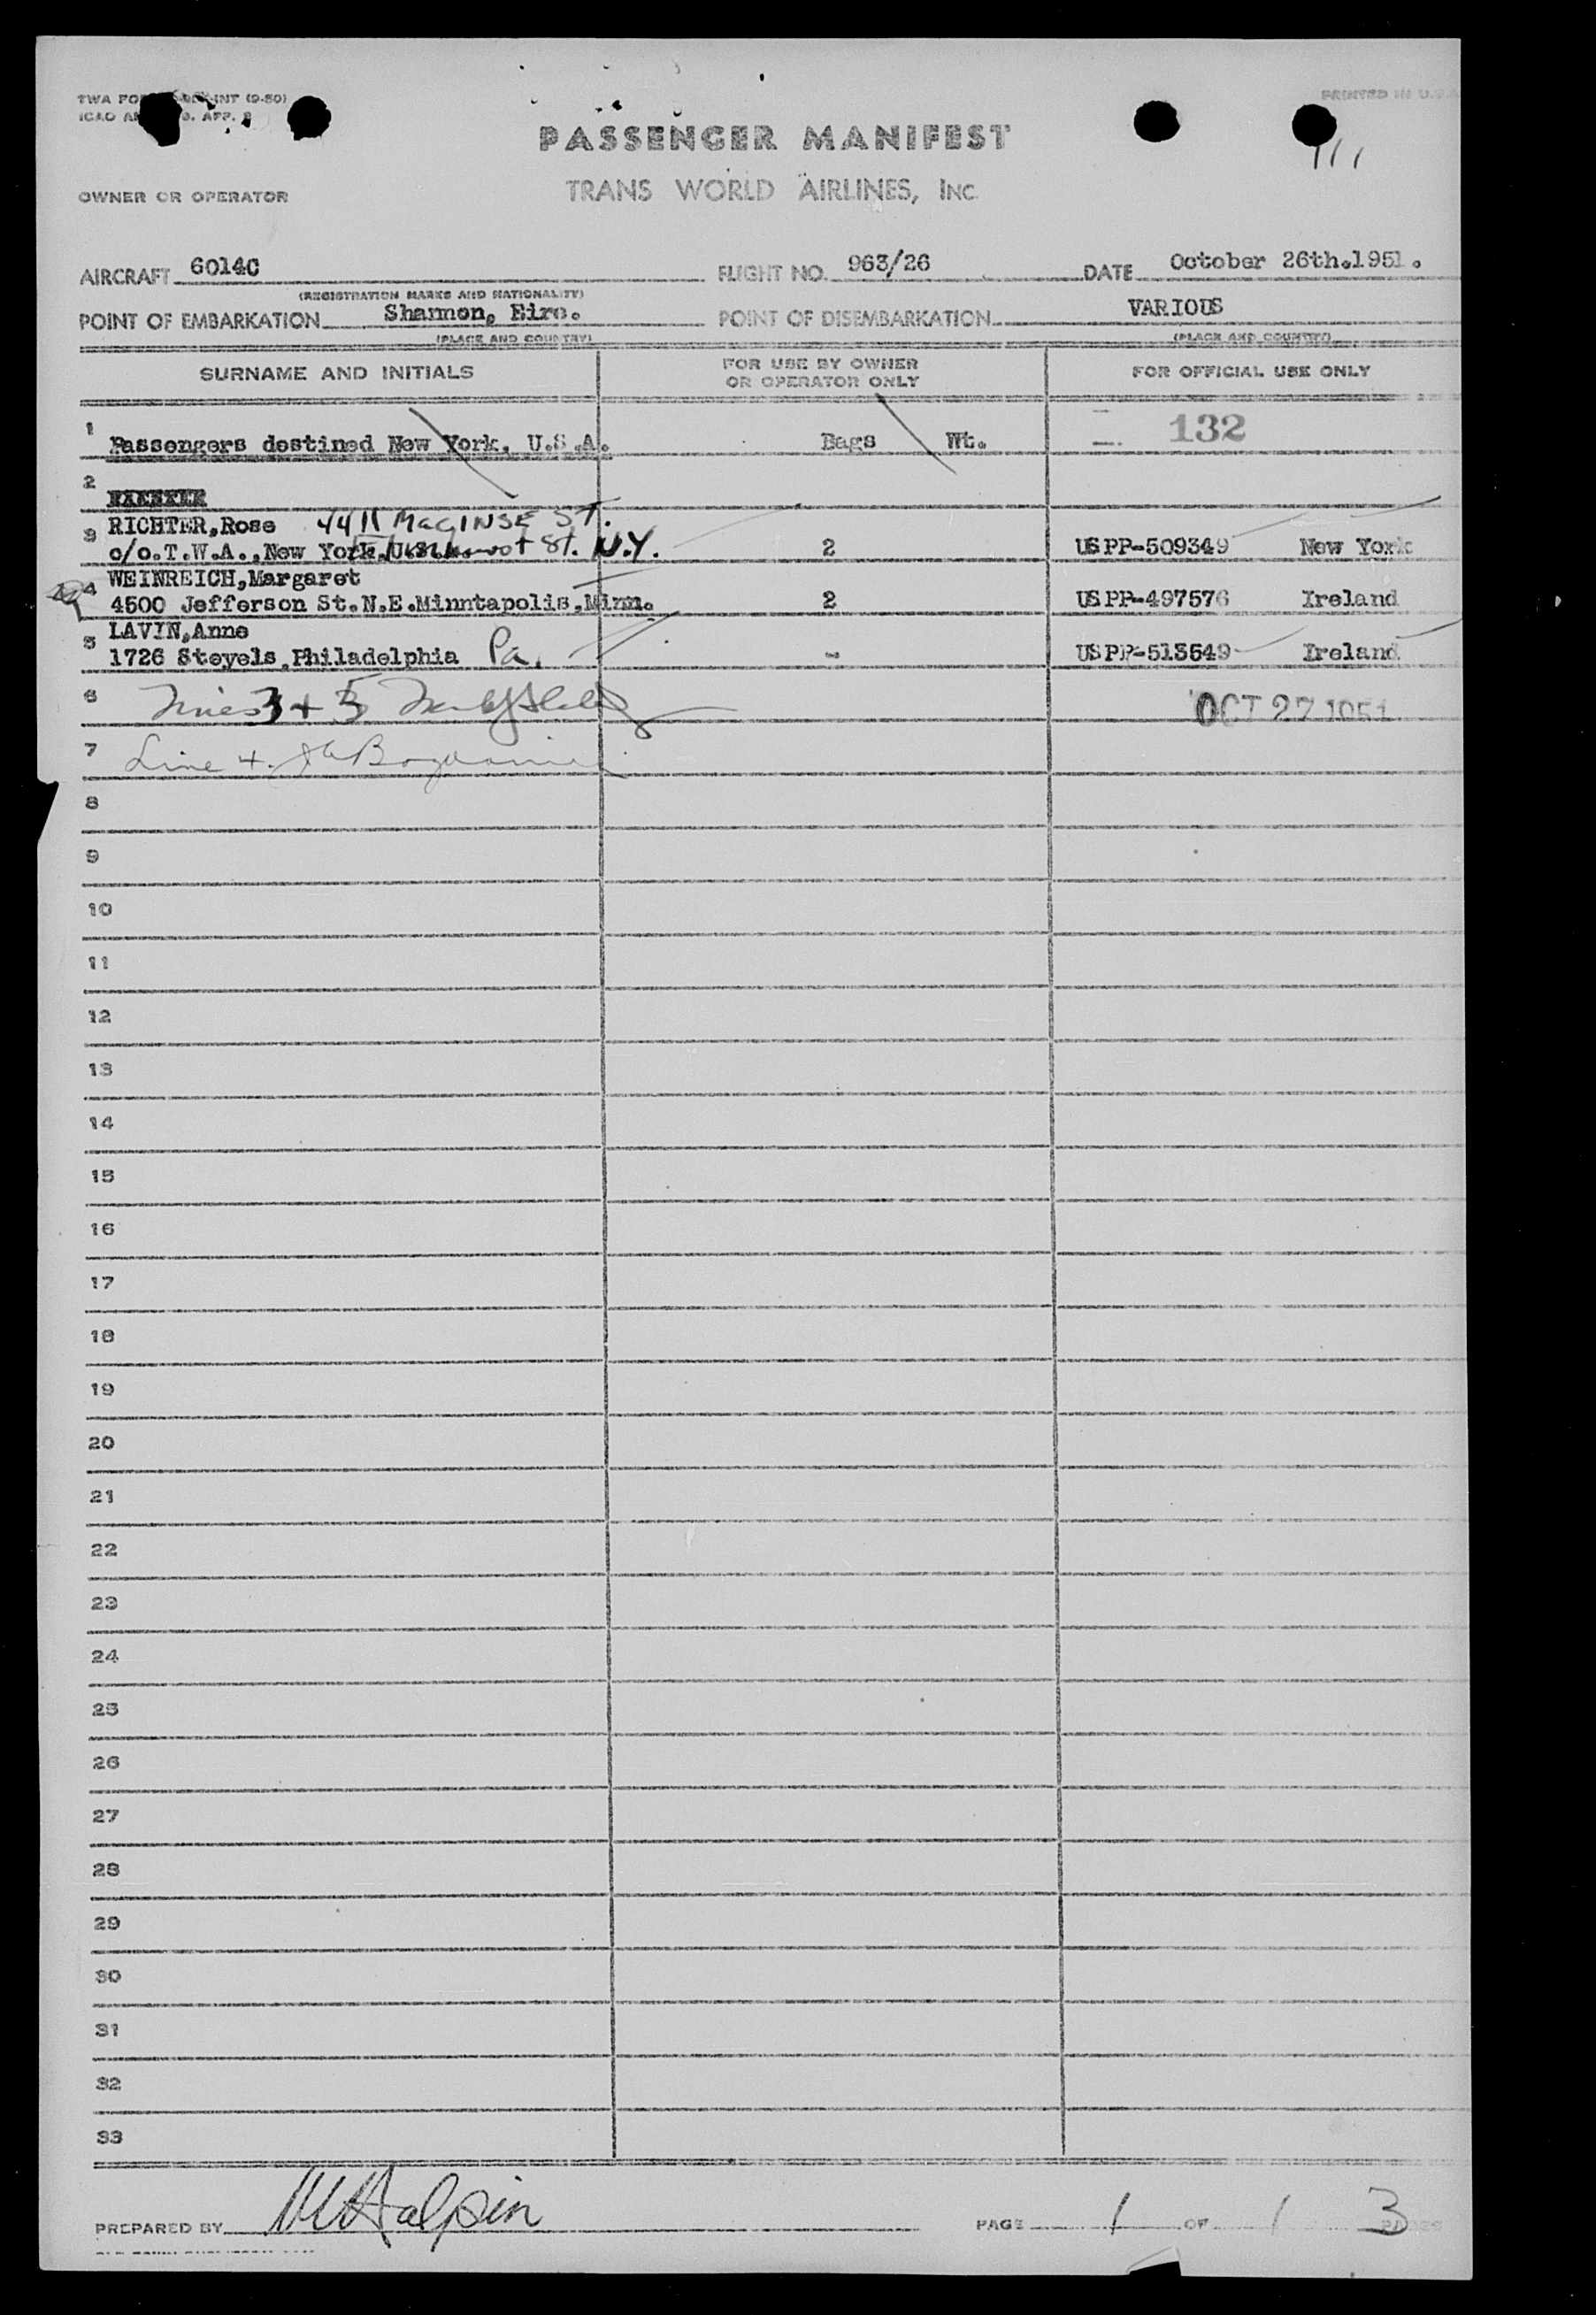 TWA FO INT (9-50)
PRINTED IN U.S.A
ICAO AN 9. APP. 
PASSENGER MANIFEST
111
TRANS WORLD AIRLINES, INC.
OWNER OR OPERATOR
AIRCRAFT 6014C FLIGHT NO. 963/26 DATE October 26th.1951.
(REGISTRATION MARKS AND NATIONALITY)
POINT OF EMBARKATION Shannon, Eire. POINT OF DISEMBARKATION VARIOUS
(PLACE AND COUNTRY) (PLACE AND COUNTRY)
SURNAME AND INITIALS FOR USE BY OWNER OR OPERATOR ONLY FOR OFFICIAL USE ONLY
1 Passengers destined New York, U.S.A. Bags Wt. 132
2
RICHTER,Rose 4411 ST.
3 c/o.T.W.A.,New York, St. N.Y. 2 USPP-509349 New York
WEINREICH,Margaret
4 4500 Jefferson St.N.E.Minntapolis,Minn. 2 USPP-497576 Ireland
LAVIN,Anne
5 1726 Steyels,Philadelphia Pa. - USPP-513549 Ireland
6 Lines 3 + 5 OCT 27 1951
7 Line 4.
8
9
10
11
12
13
14
15
16
17
18
19
20
21
22
23
24
25
26
27
28
29
30
31
32
33
PREPARED BY MHalpin PAGE 1 OF 1 3 PAGES